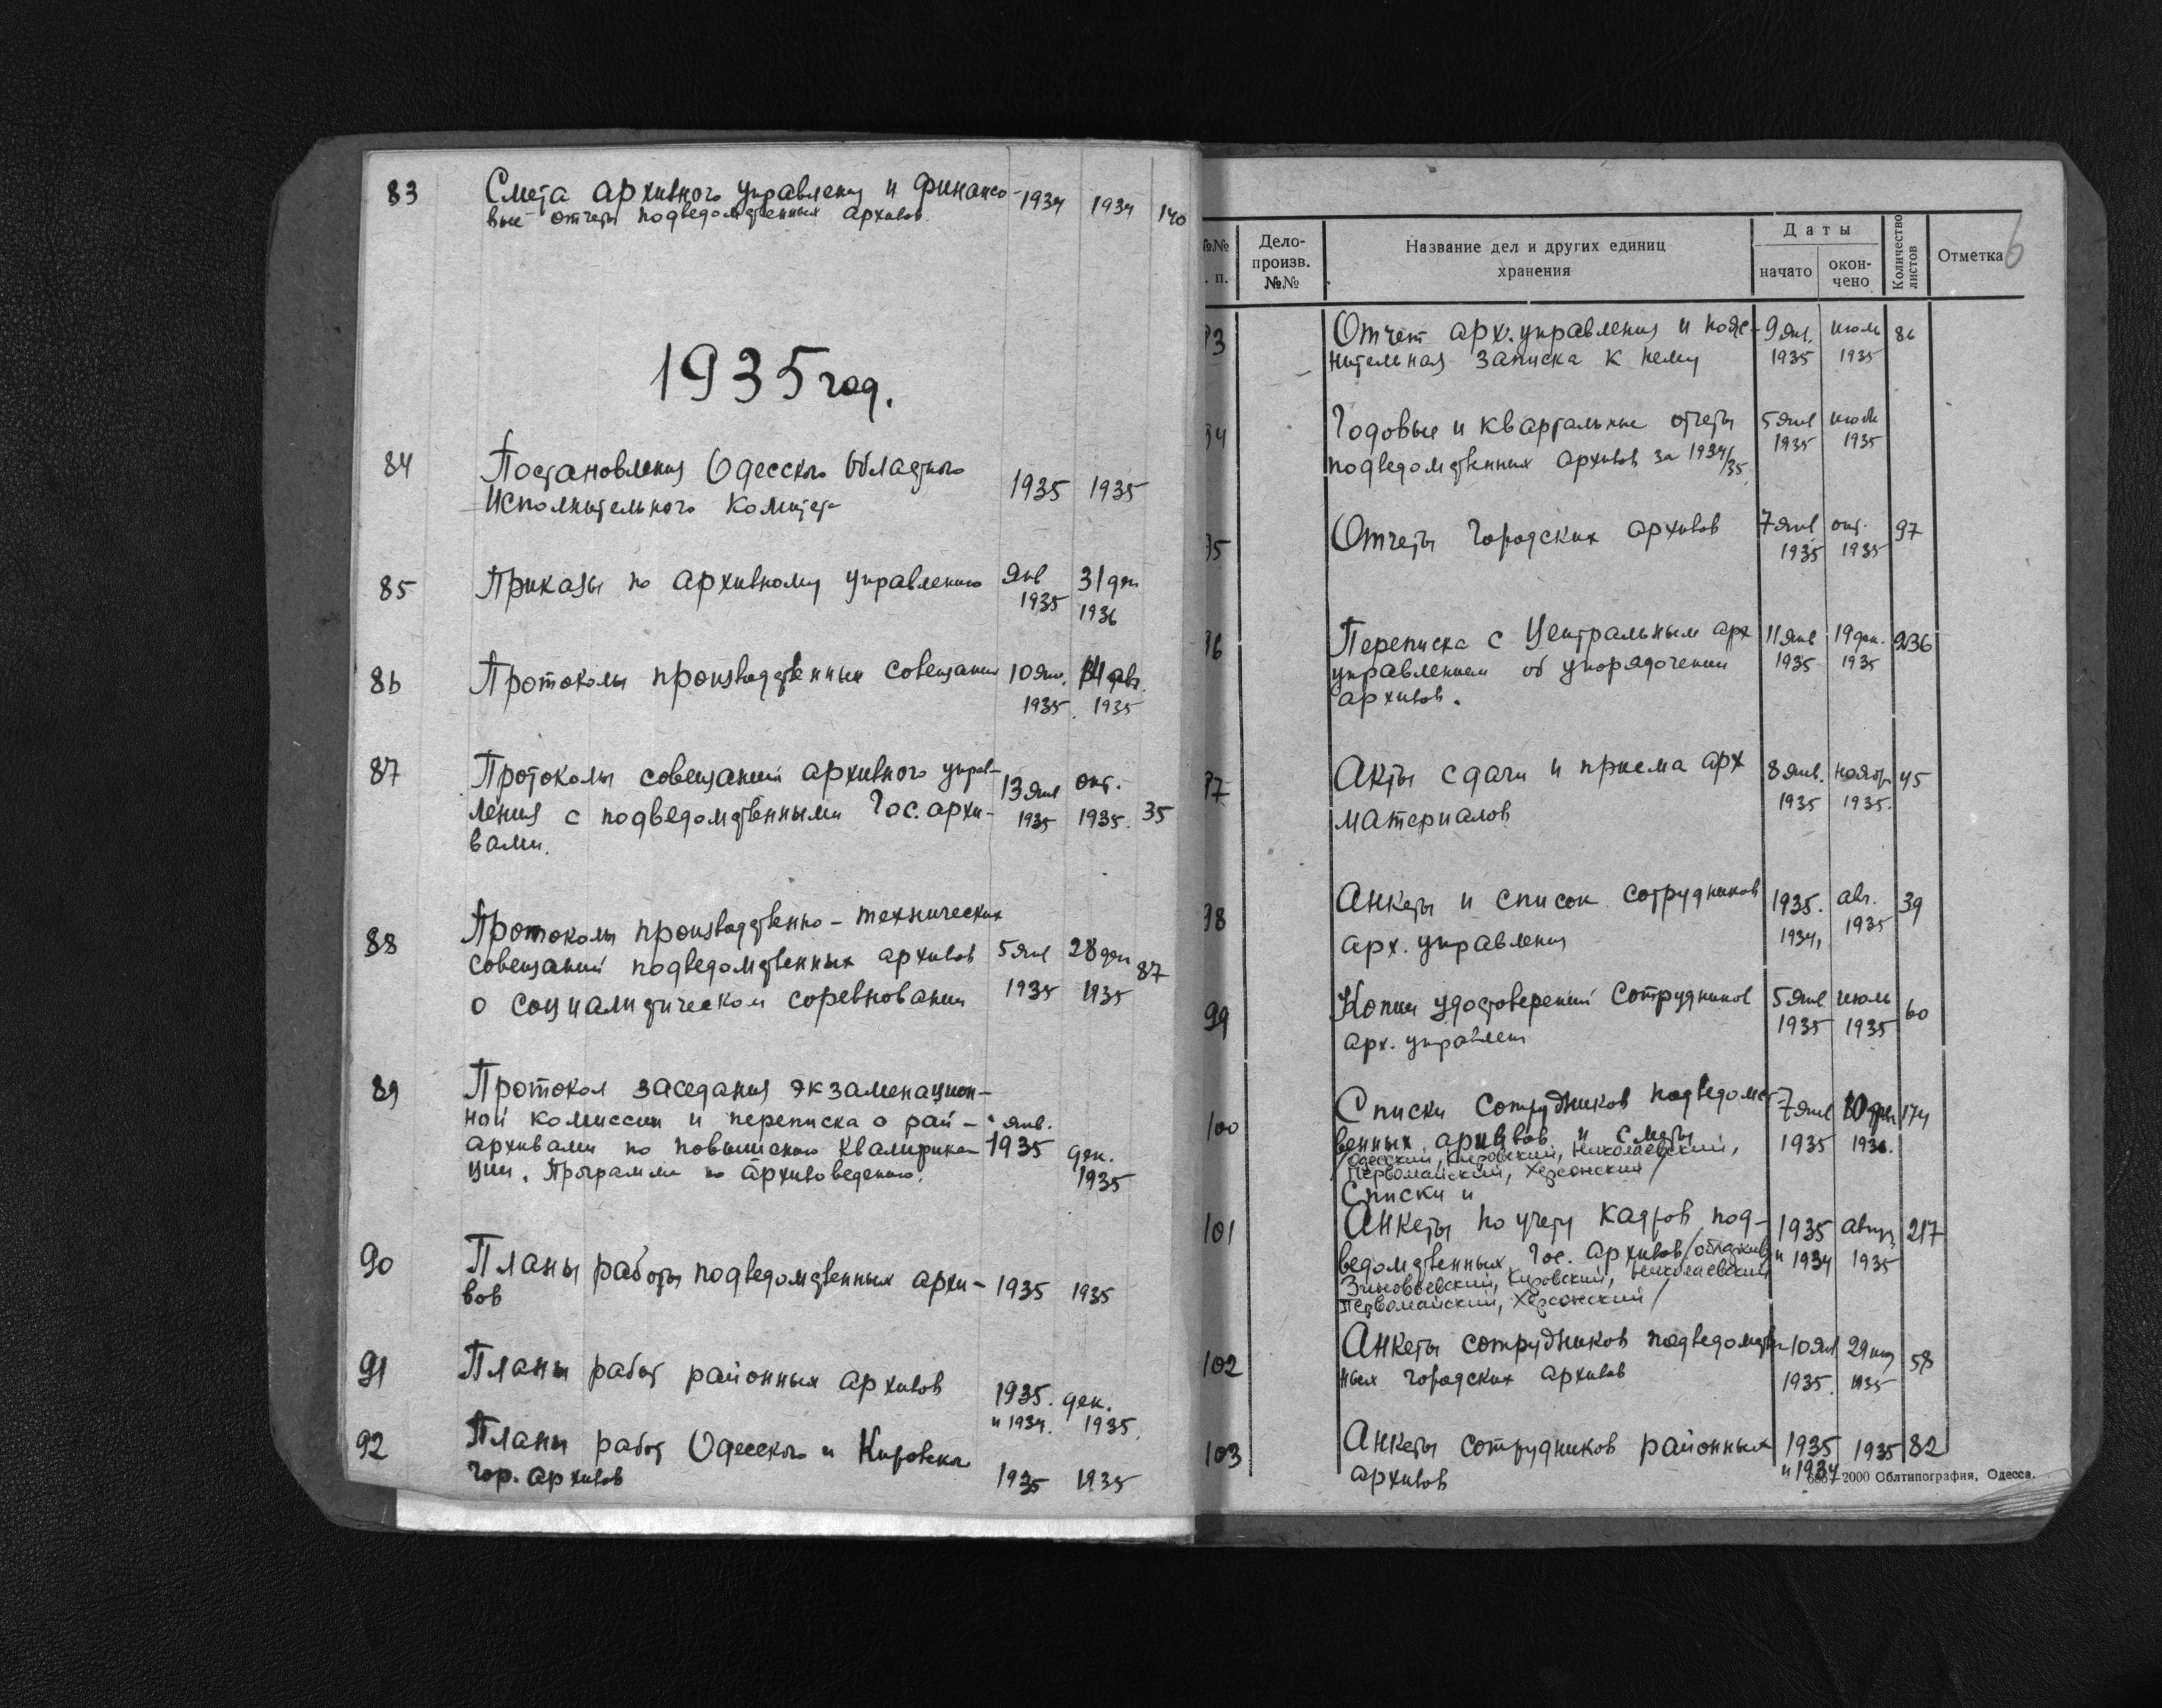 83 Смета архивного управления и финансо- 1934 1934 140
вые отчеты подведомственных архивов
1935 год.
84 Постановления Одесского Областного
Исполнительного Комитета 1935 1935
85 Приказы по архивному управлению янв 31 дек
1935 1936
86 Протоколы производственных совещаний 10 янв. авг.
1935. 1935
87 Протоколы совещаний архивного управ- 13 янв окт.
ления с подведомственными Гос. архи- 1935 1935. 35
вами.
88 Протоколы производственно-технических
совещаний подведомственных архивов 5 янв 28 дек 87
о социалистическом соревновании 1935 1935
89 Протокол заседания экзаменацион-
ной комиссии и переписка о рай- янв.
архивами по повышению квалифика- 1935 дек.
ции. Программы по архивоведению. 1935
90 Планы работы подведомственных архи- 1935 1935
вов
91 Планы работ районных архивов 1935. дек.
и 1934. 1935.
92 Планы работ Одесского и Кировского
гор. архивов 1935 1935
6
№№ п. Дело-произв. №№ Название дел и других единиц хранения Даты начато окон-чено Количество листов Отметка
93 Отчет арх. управления и пояс- 9 янв. июль 86
нительная записка к нему 1935 1935
94 Годовые и квартальные отчеты 5 янв июль
подведомственных архивов за 1934/35. 1935 1935
95 Отчеты городских архивов 7 янв окт. 97
1935 1935
96 Переписка с Центральным арх 11 янв 19 дек. 236
управлением об упорядочении 1935 1935
архивов.
97 Акты сдачи и приема арх 8 янв. ноябр 45
материалов 1935 1935.
98 Анкеты и список сотрудников 1935. авг. 39
арх. управления 1934, 1935
99 Копии удостоверений сотрудников 5 янв июль 60
арх. управлен 1935 1935
100 Списки сотрудников подведомст- 7 янв 10 дек 174
венных архивов и сметы 1935 1936.
/Одесский, Кировский, Николаевский,
Первомайский, Херсонский/
Списки и
101 Анкеты по учету кадров под- 1935 август 217
ведомственных Гос. архивов /областной и 1934 1935
Зиновьевский, Кировский, Николаевский
Первомайский, Херсонский/
102 Анкеты сотрудников подведомствен- 10 янв 29 58
ных городских архивов 1935. 1935
103 Анкеты сотрудников районных 1935 1935 82
архивов и 1934
2000 Облтипография, Одесса.